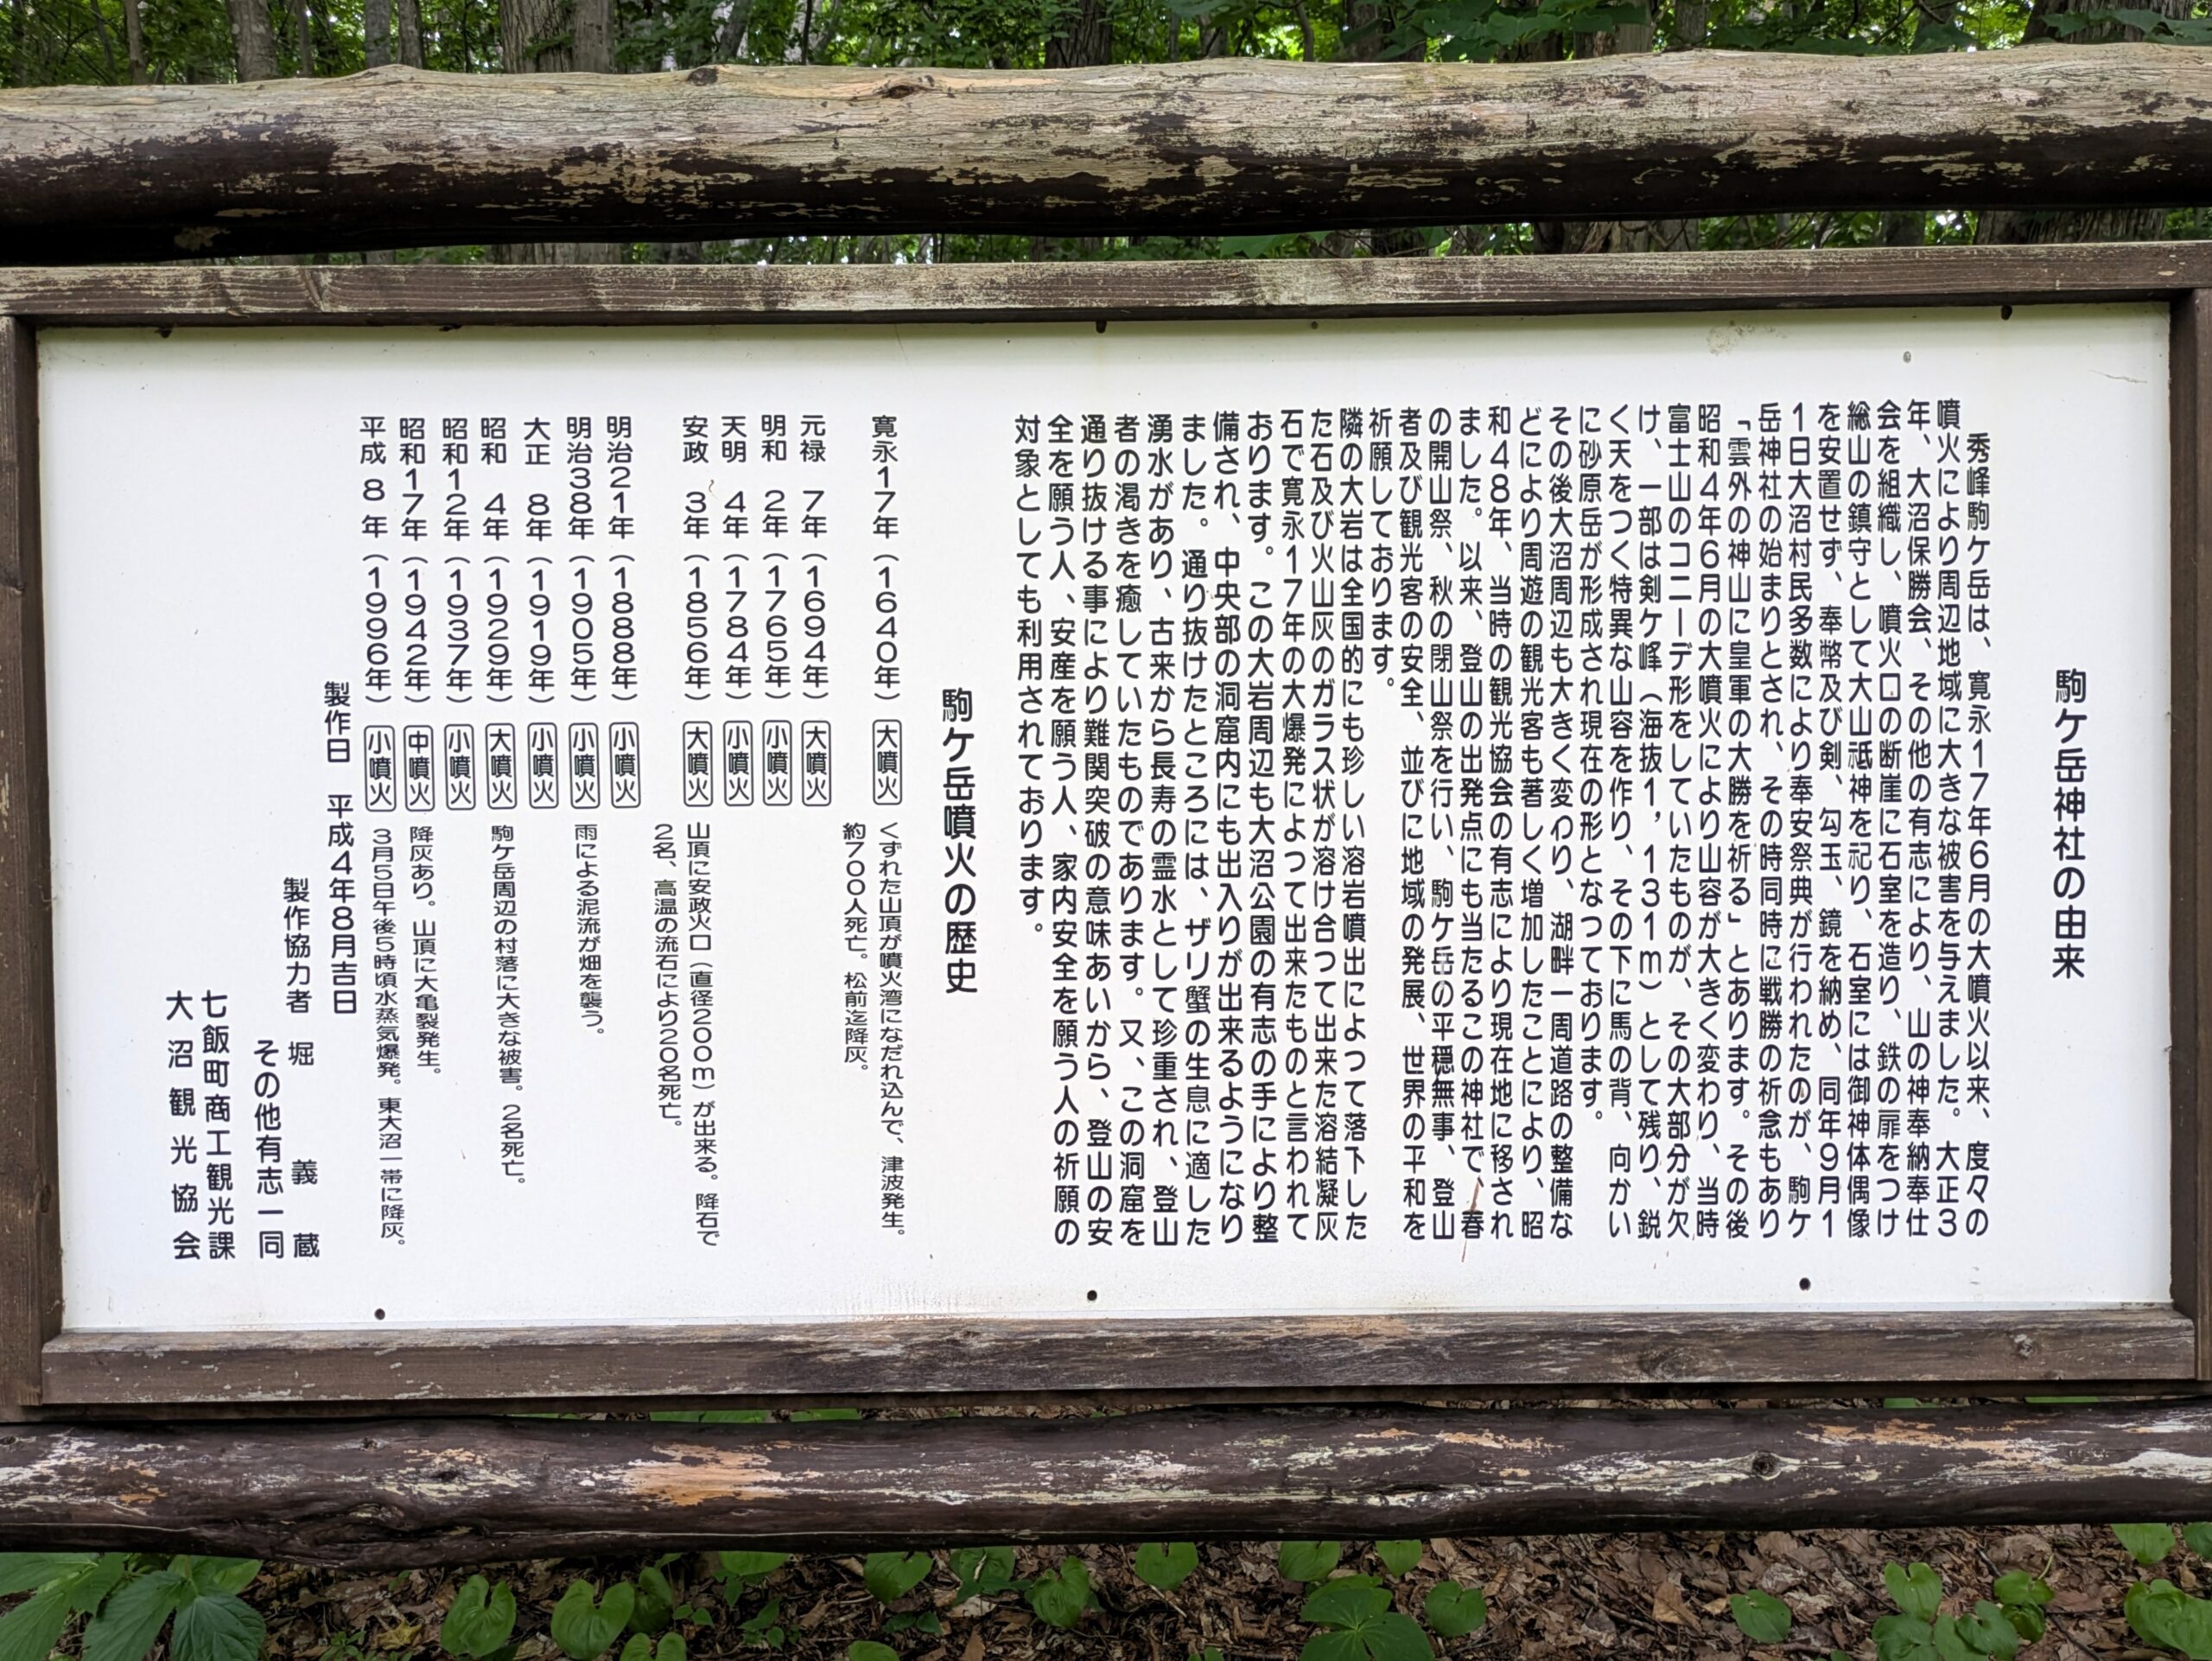 駒ケ岳神社の由来
秀峰駒ケ岳は、寛永17年6月の大噴火以来、度々の
噴火により周辺地域に大きな被害を与えました。大正3
年、大沼保勝会、その他の有志により、山の神奉納奉仕
会を組織し、噴火口の断崖に石室を造り、鉄の扉をつけ
総山の鎮守として大山祗神を祀り、石室には御神体偶像
を安置せず、奉幣及び剣、勾玉、鏡を納め、同年9月1
1日大沼村民多数により奉安祭典が行われたのが、駒ケ
岳神社の始まりとされ、その時同時に戦勝の祈念もあり
「雲外の神山に皇軍の大勝を祈る」とあります。その後
昭和4年6月の大噴火により山容が大きく変わり、当時
富士山のコニーデ形をしていたものが、その大部分が欠
け、一部は剣ケ峰（海抜1，131m）として残り、鋭
く天をつく特異な山容を作り、その下に馬の背、向かい
に砂原岳が形成され現在の形となつております。
その後大沼周辺も大きく変わり、湖畔一周道路の整備な
どにより周遊の観光客も著しく増加したことにより、昭
和48年、当時の観光協会の有志により現在地に移され
ました。以来、登山の出発点にも当たるこの神社で、春
の開山祭、秋の閉山祭を行い、駒ケ岳の平穏無事、登山
者及び観光客の安全、並びに地域の発展、世界の平和を
祈願しております。
隣の大岩は全国的にも珍しい溶岩噴出によって落下した
た石及び火山灰のガラス状が溶け合つて出来た溶結凝灰
石で寛永17年の大爆発によって出来たものと言われて
おります。この大岩周辺も大沼公園の有志の手により整
備され、中央部の洞窟内にも出入りが出来るようになり
ました。通り抜けたところには、ザリ蟹の生息に適した
湧水があり、古来から長寿の霊水として珍重され、登山
者の渇きを癒していたものであります。又、この洞窟を
通り抜ける事により難関突破の意味あいから、登山の安
全を願う人、安産を願う人、家内安全を願う人の祈願の
対象としても利用されております。
駒ケ岳噴火の歴史
寛永17年（1640年） 大噴火 くずれた山頂が噴火湾になだれ込んで、津波発生。
約700人死亡。松前迄降灰。
元禄 7年（1694年） 大噴火
明和 2年（1765年） 小噴火
天明 4年（1784年） 小噴火
安政 3年（1856年） 大噴火 山頂に安政火口（直径200m）が出来る。降石で
2名、高温の流石により20名死亡。
明治21年（1888年） 小噴火
明治38年（1905年） 小噴火 雨による泥流が畑を襲う。
大正 8年（1919年） 小噴火
昭和 4年（1929年） 大噴火 駒ケ岳周辺の村落に大きな被害。2名死亡。
昭和12年（1937年） 小噴火
昭和17年（1942年） 中噴火 降灰あり。山頂に大亀裂発生。
平成 8年（1996年） 小噴火 3月5日午後5時頃水蒸気爆発。東大沼一帯に降灰。
製作日 平成4年8月吉日
製作協力者 堀 義蔵
その他有志一同
七飯町商工観光課
大沼観光協会